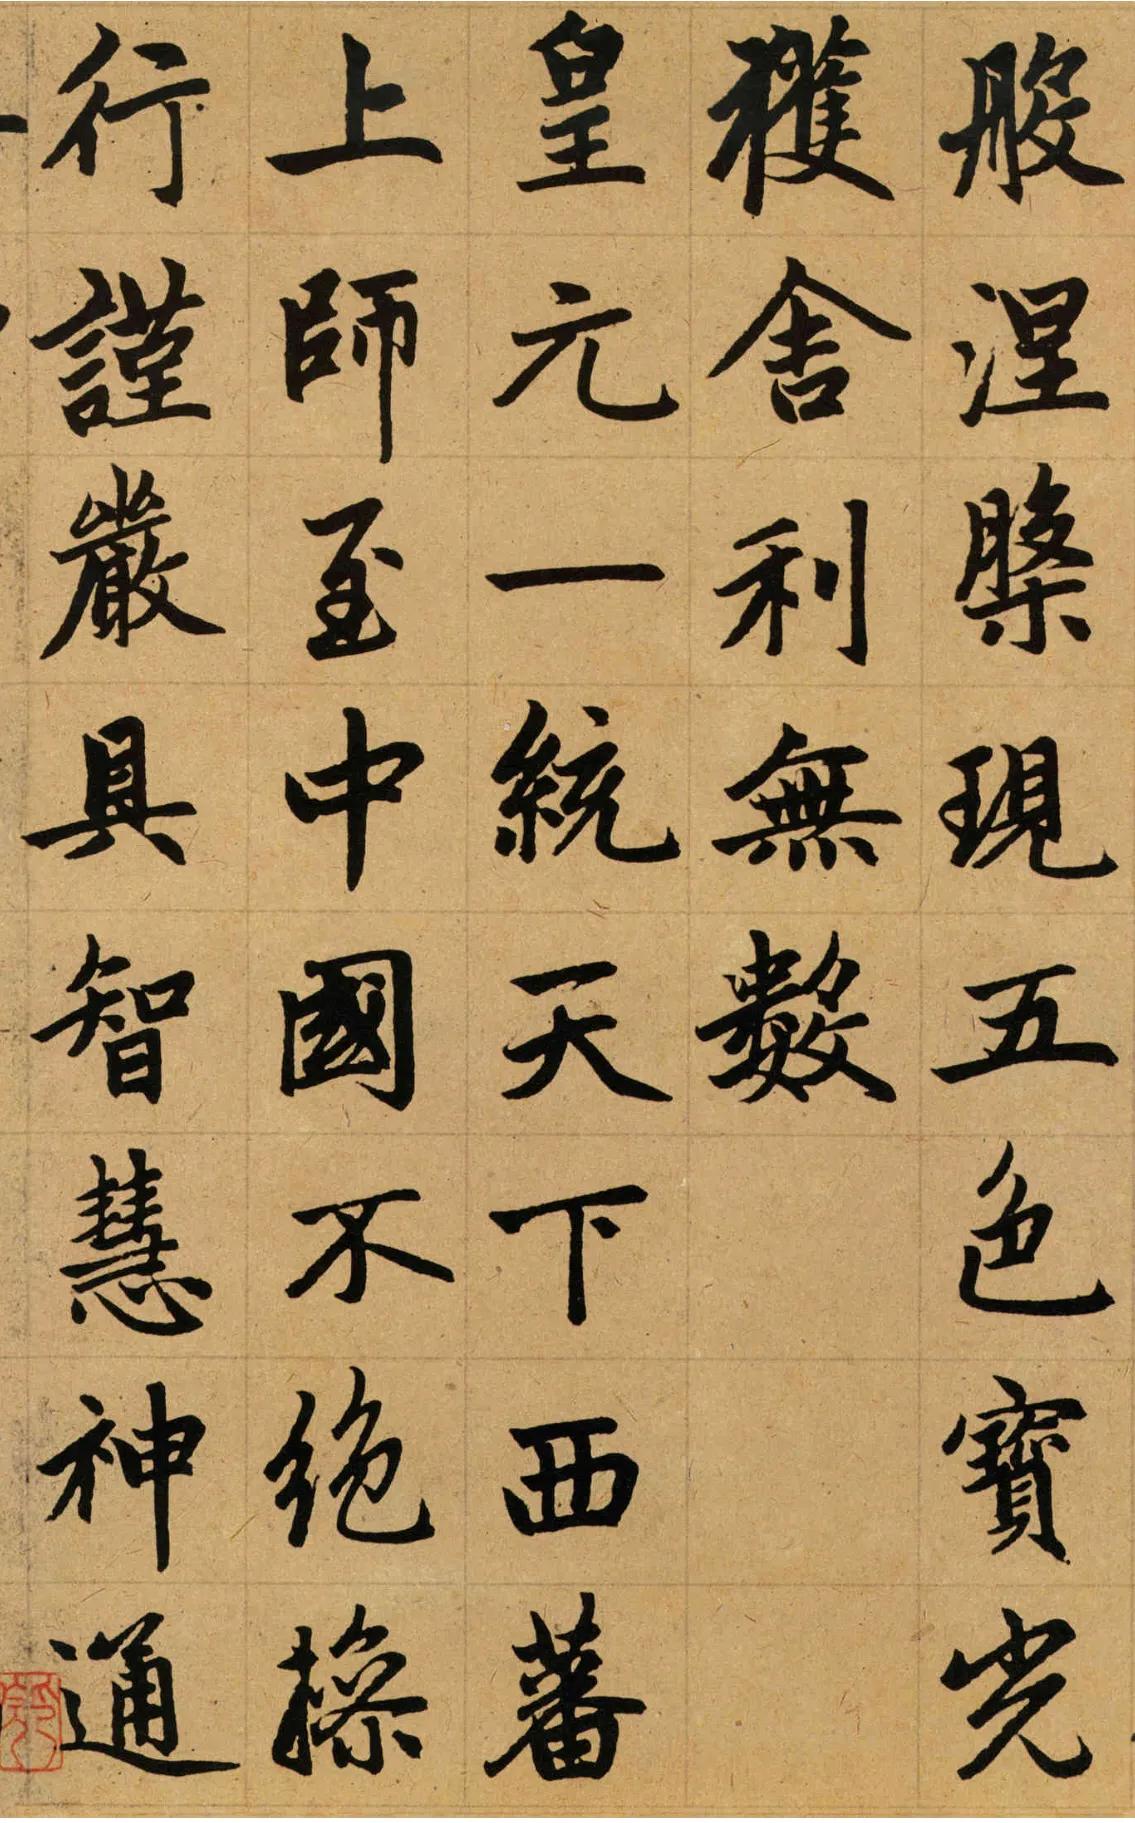 般涅槃現五色寶光
獲舍利無數
皇元一統天下西蕃
上師至中國不絕操
行謹嚴具智慧神通